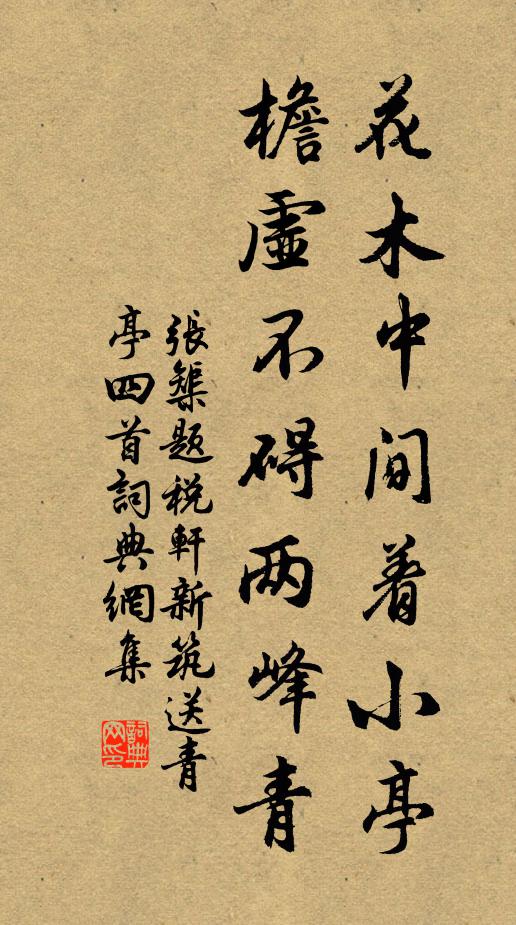 花木中间着小亭
檐虚不碍两峰青
張榘题税軒新筑送青
亭四首詞典網集
詞典网印